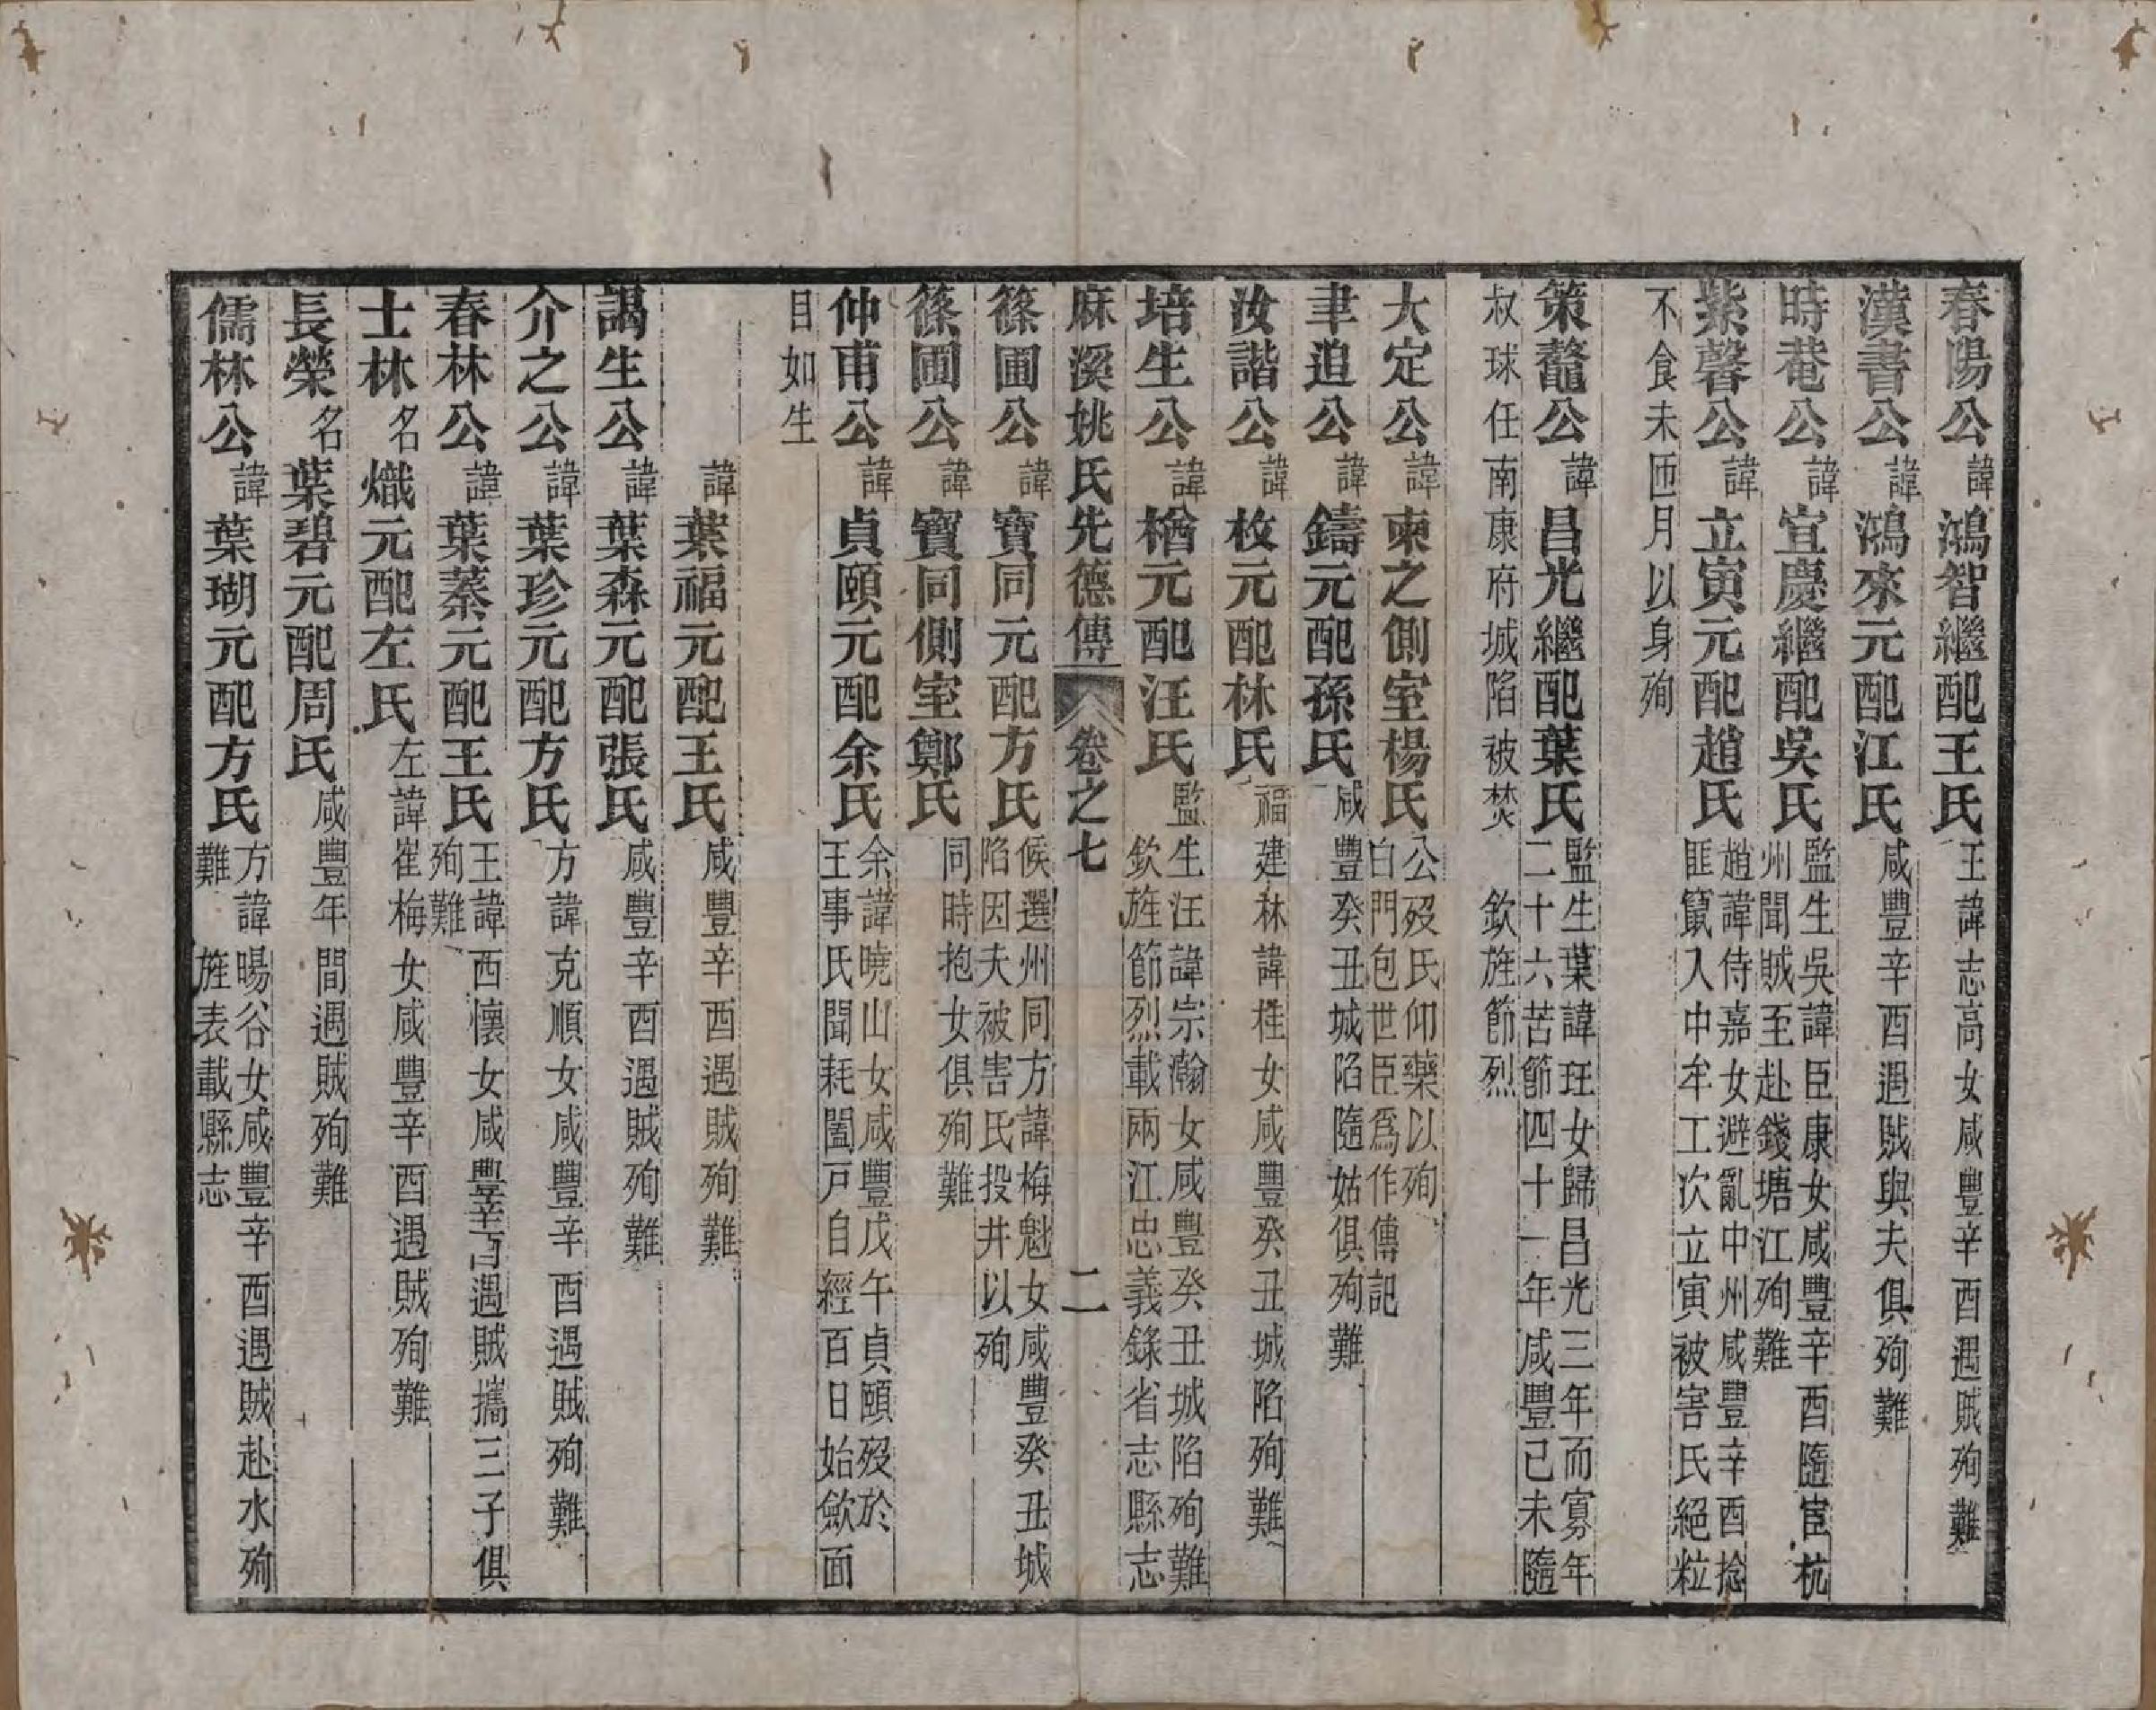 春陽公諱鴻智繼配王氏王諱志高女咸豐辛酉遇賊殉難
漢書公諱鴻來元配江氏咸豐辛酉遇賊與夫俱殉難
時菴公諱宜慶繼配吳氏監生吳諱臣康女咸豐辛酉隨宦杭
州聞賊至赴錢塘江殉難
紫馨公諱立寅元配趙氏趙諱侍嘉女避亂中州咸豐辛酉捻
匪竄入中牟工次立寅被害氏絕粒
不食未匝月以身殉
策鼇公諱昌光繼配葉氏監生葉諱玨女歸昌光三年而寡年
二十六苦節四十一年咸豐已未隨
叔球任南康府城陷被焚 欽旌節烈
大定公諱柬之側室楊氏公歿氏仰藥以殉
白門包世臣爲作傳記
聿追公諱鑄元配孫氏咸豐癸丑城陷隨姑俱殉難
汝諧公諱枚元配林氏福建林諱桂女咸豐癸丑城陷殉難
培生公諱楢元配汪氏監生汪諱宗瀚女咸豐癸丑城陷殉難
欽旌節烈載兩江忠義錄省志縣志
麻溪姚氏先德傳 卷之七 二
篠圃公諱寶同元配方氏候選州同方諱梅魁女咸豐癸丑城
陷因夫被害氏投井以殉
篠圃公諱寶同側室鄭氏同時抱女俱殉難
仲甫公諱貞頤元配余氏余諱曉山女咸豐戊午貞頤歿於
王事氏聞耗闔戸自經百日始歛面
目如生
諱葉福元配王氏咸豐辛酉遇賊殉難
謁生公諱葉森元配張氏咸豐辛酉遇賊殉難
介之公諱葉珍元配方氏方諱克順女咸豐辛酉遇賊殉難
春林公諱葉蓁元配王氏王諱西懷女咸豐辛酉遇賊攜三子俱
殉難
士林名熾元配左氏左諱崔梅女咸豐辛酉遇賊殉難
長榮名葉碧元配周氏咸豐年間遇賊殉難
儒林公諱葉瑚元配方氏方諱暘谷女咸豐辛酉遇賊赴水殉
難 旌表載縣志